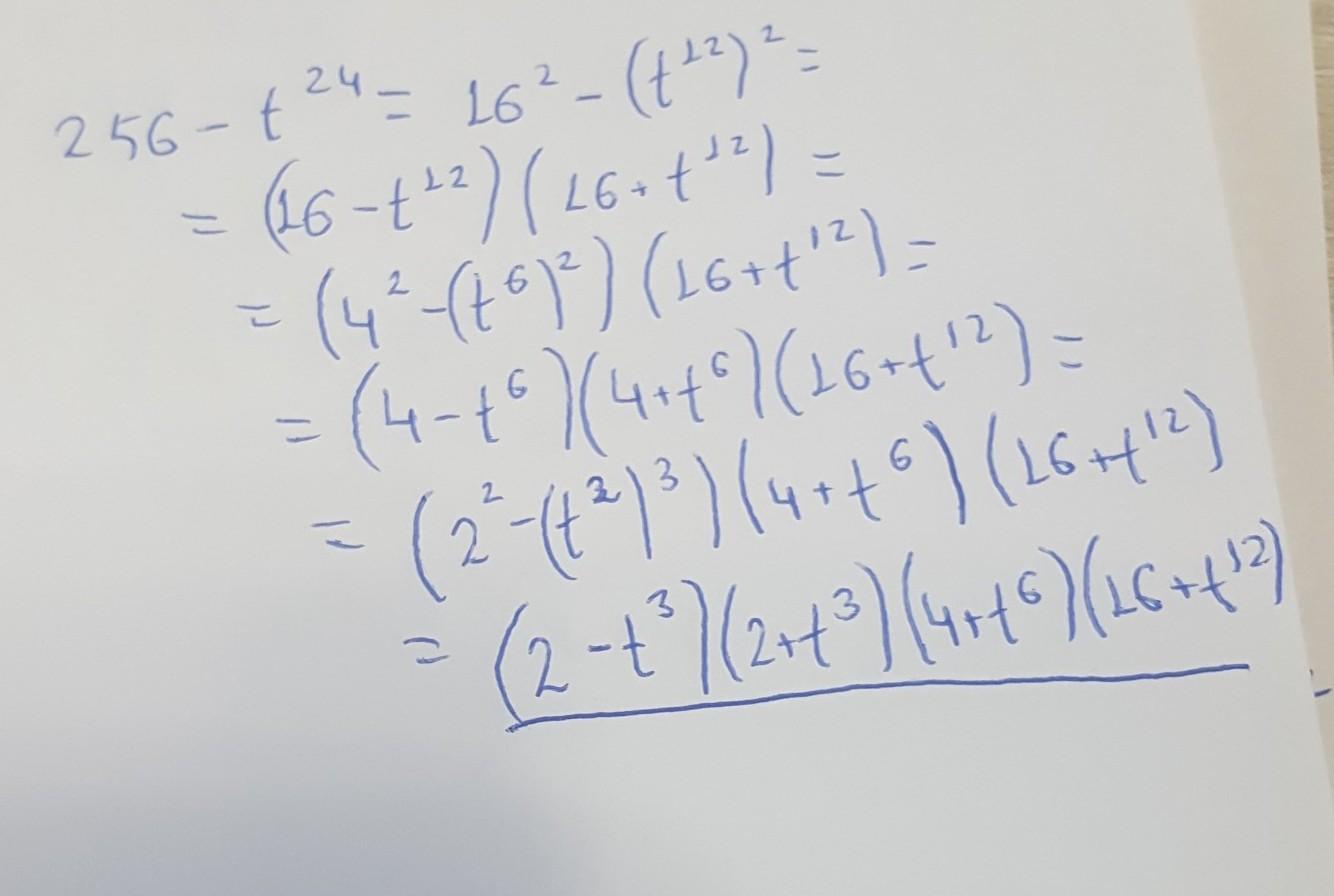 256 - t^24 = 16^2 - (t^12)^2 =
= (16 - t^12)(16 + t^12) =
= (4^2 - (t^6)^2)(16 + t^12) =
= (4 - t^6)(4 + t^6)(16 + t^12) =
= (2^2 - (t^2)^3)(4 + t^6)(16 + t^12)
= (2 - t^3)(2 + t^3)(4 + t^6)(16 + t^12)